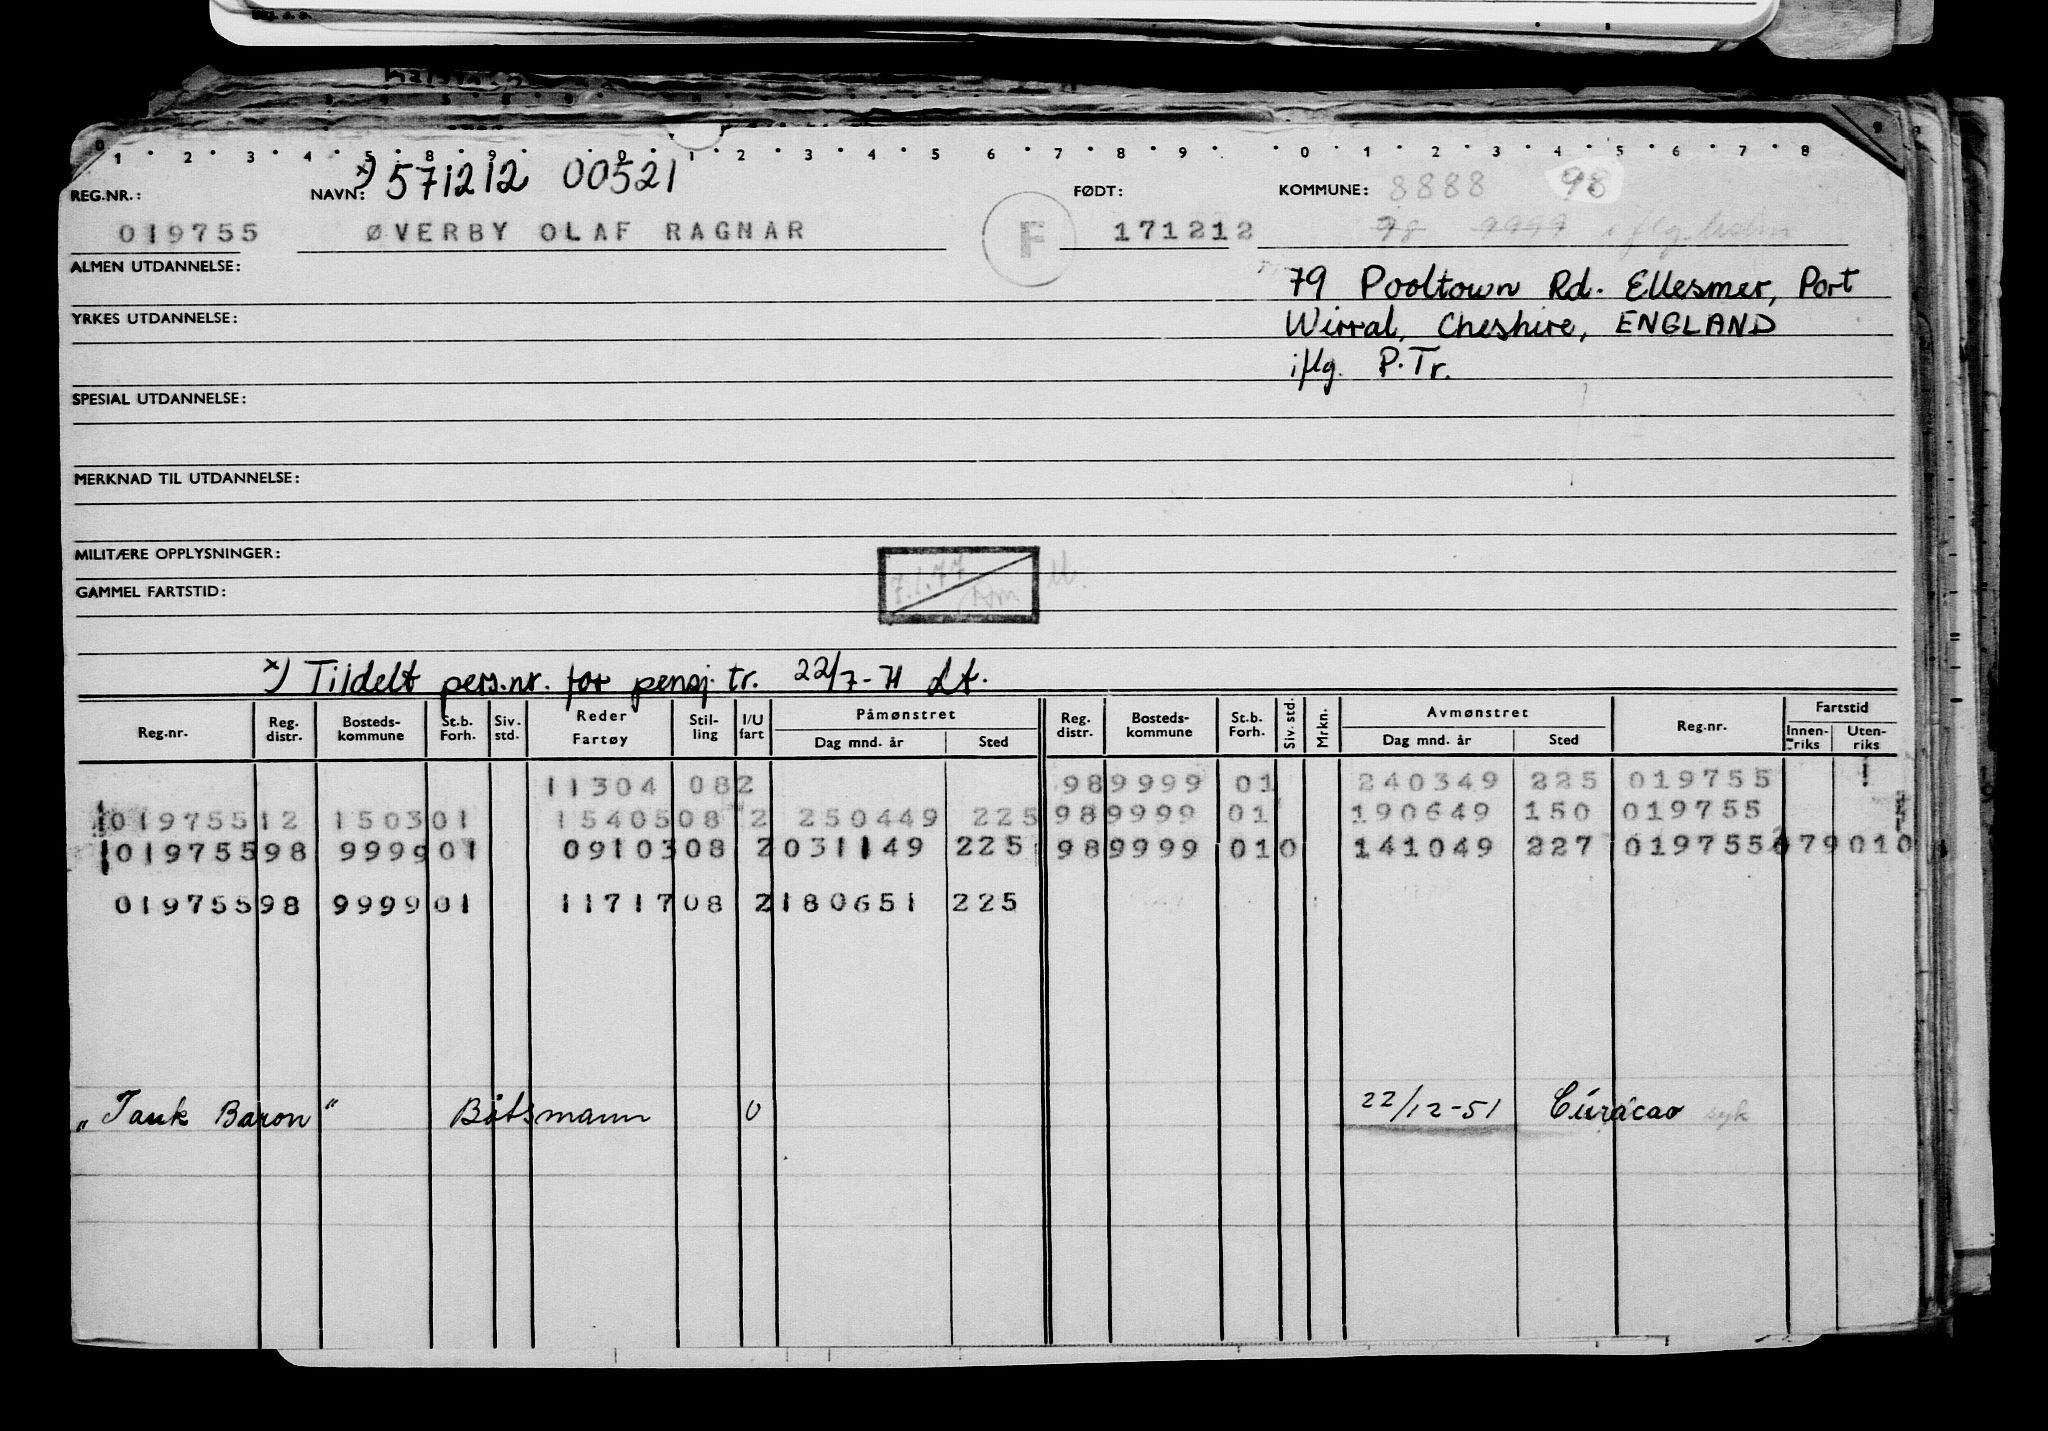 0 1 2 3 4 5 8 9 0 1 2 3 4 5 6 7 8 9 0 1 2 3 4 5 6 7 8 9
x) 571212 00521
REG.NR.: NAVN: FØDT: KOMMUNE: 8888 98
019755 ØVERBY OLAF RAGNAR F 171212 98 9999 iflg.
ALMEN UTDANNELSE: 79 Pooltown Rd. Ellesmer, Port
YRKES UTDANNELSE: Wirral, Cheshire, ENGLAND
iflg. P.Tr.
SPESIAL UTDANNELSE:
MERKNAD TIL UTDANNELSE:
MILITÆRE OPPLYSNINGER: 7.1.77
GAMMEL FARTSTID:
x) Tildelt pers.nr. for pensj. tr. 22/7-71 Lt.
Reg.nr. Reg. distr. Bosteds-kommune St.b. Forh. Siv. std. Reder Fartøy Stil-ling I/U fart Påmønstret Dag mnd. år Sted Reg. distr. Bosteds-kommune St.b. Forh. Siv. std. Mrkn. Avmønstret Dag mnd. år Sted Reg.nr. Fartstid Innen-riks Uten-riks
11304 08 2 98 9999 01 240349 225 019755
019755 12 1503 01 15405 08 2 250449 225 98 9999 01 190649 150 019755
019755 98 9999 01 09103 08 2 031149 225 98 9999 01 0 141049 227 019755 079 010
019755 98 9999 01 11717 08 2 180651 225
„Tank Baron“ Båtsmann U 22/12-51 Curácao syk